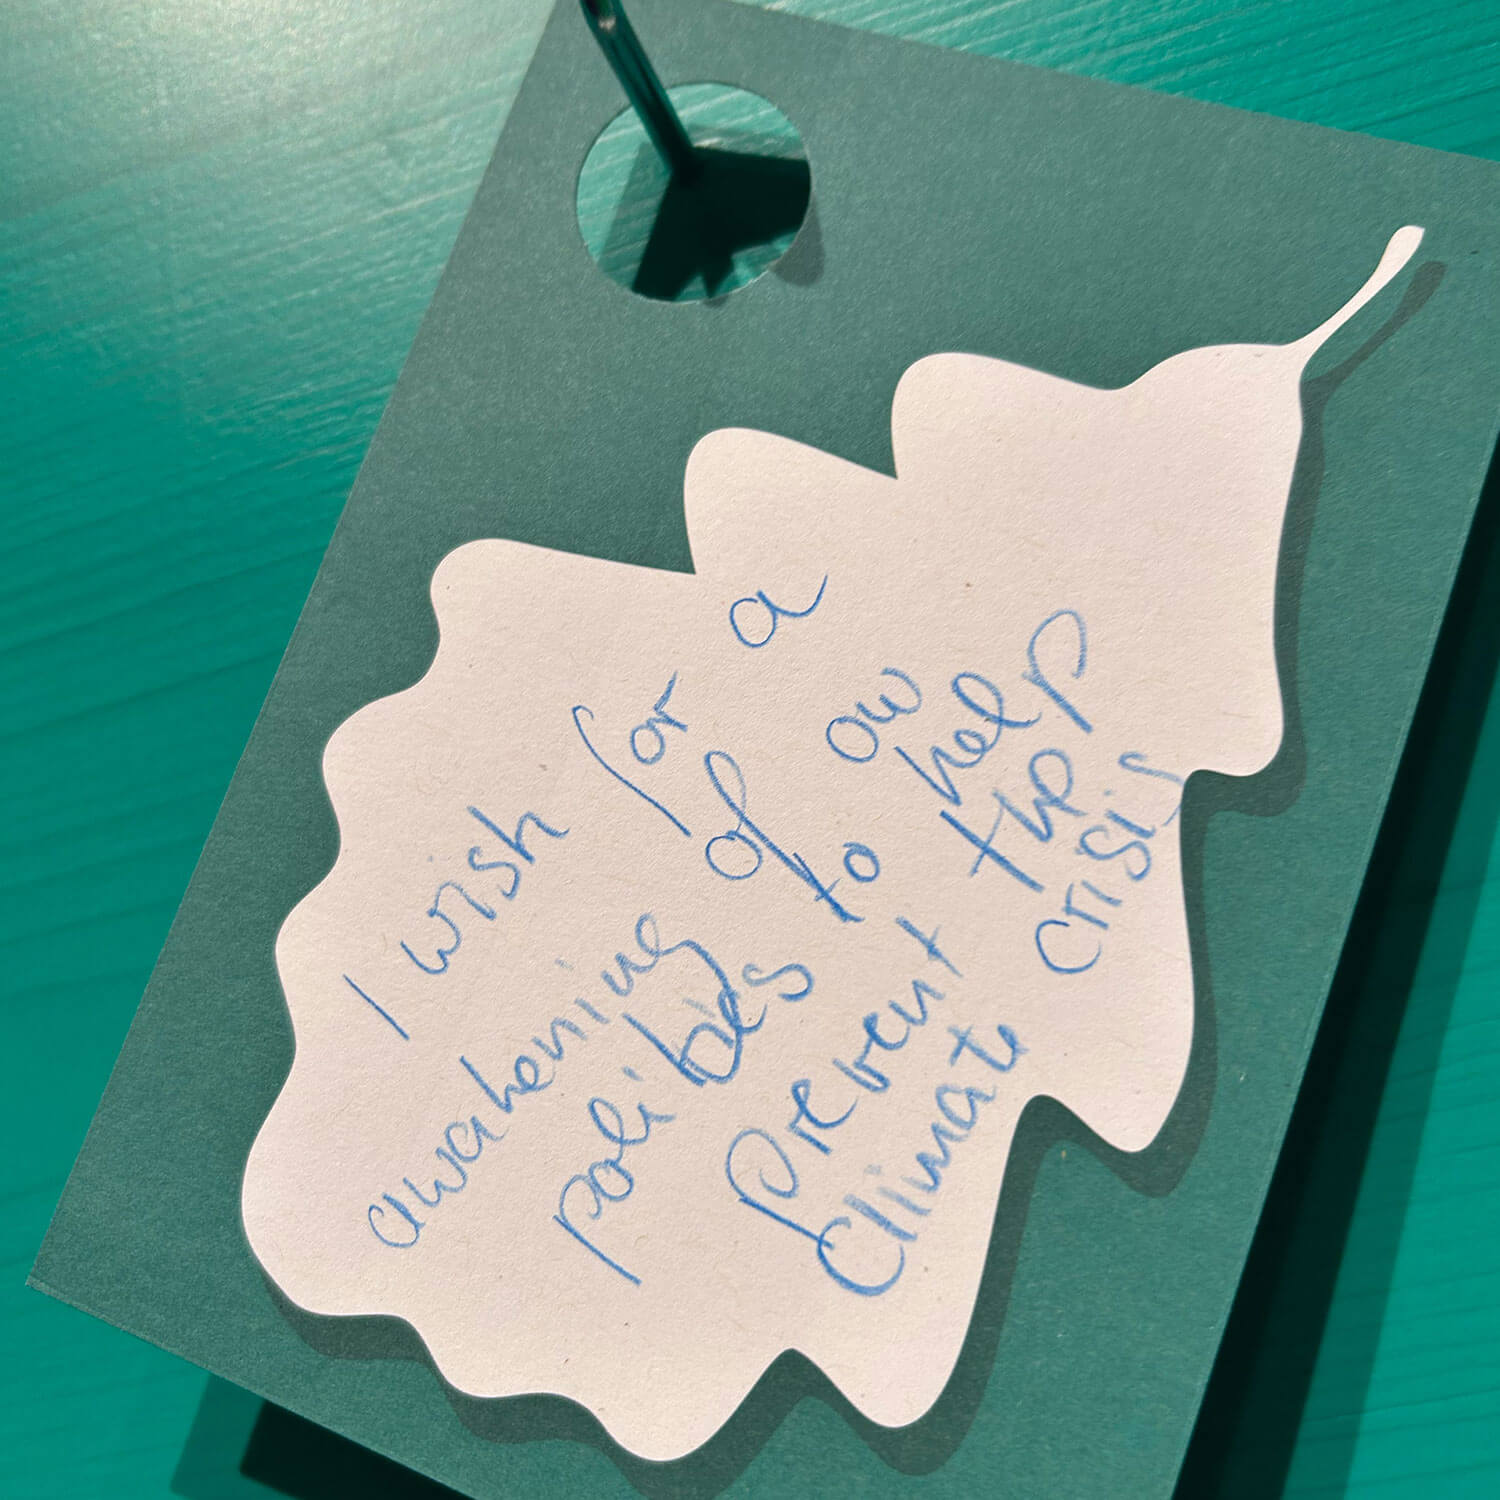 I wish for a
awakening of our
politics to help
prevent the
climate crisis